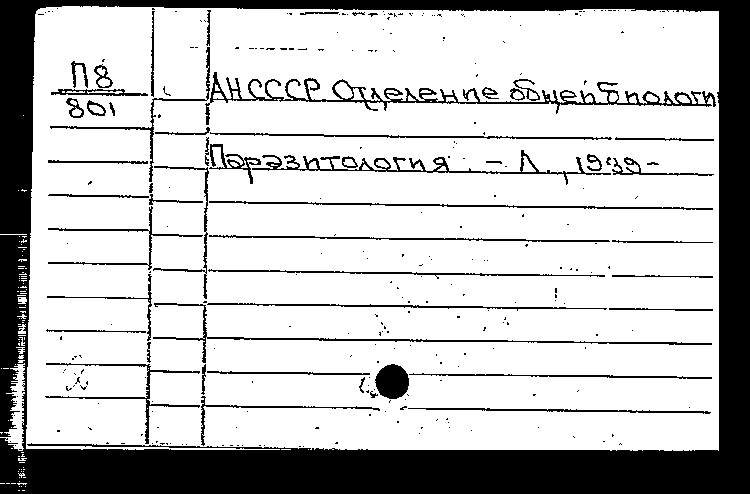 П8
801
АНСССР Отделение общей биологи
Паразитология. – Л., 1939–